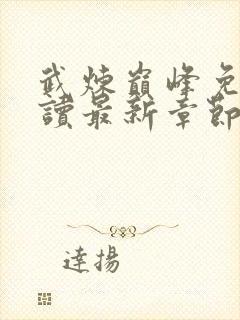 武煉巔峰免
讀最新章節
達揚